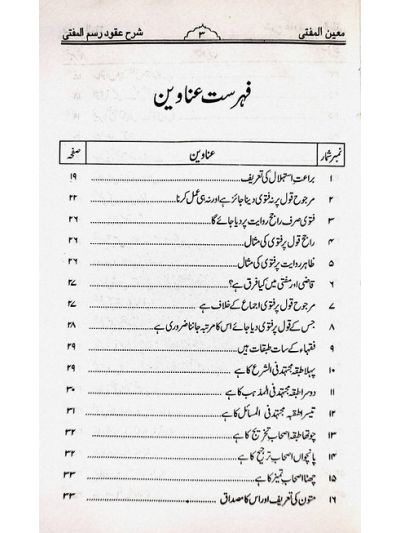 معین المفتی ۳ شرح عقود رسم المفتی
فہرست عناوین
نمبر شمار عناوین صفحہ
۱ براعتِ استہلال کی تعریف ۱۹
۲ مرجوح قول پر نہ فتوی دینا جائز ہے اور نہ ہی عمل کرنا ۲۲
۳ فتوی صرف راجح روایت پر دیا جائے گا ۲۶
۴ راجح قول پر فتوی کی مثال ۲۶
۵ ظاہر روایت پر فتوی کی مثال ۲۶
۶ قاضی اور مفتی میں کیا فرق ہے؟ ۲۷
۷ مرجوح قول پر فتوی اجماع کے خلاف ہے ۲۷
۸ جس کے قول پر فتوی دیا جائے اس کا مرتبہ جاننا ضروری ہے ۲۸
۹ فقہاء کے سات طبقات ہیں ۲۹
۱۰ پہلا طبقہ مجتہد فی الشرع کا ہے ۲۹
۱۱ دوسرا طبقہ مجتہد فی المذہب کا ہے ۳۰
۱۲ تیسرا طبقہ مجتہد فی المسائل کا ہے ۳۱
۱۳ چوتھا طبقہ اصحاب تخریج کا ہے ۳۲
۱۴ پانچواں اصحاب ترجیح کا ہے ۳۲
۱۵ چھٹا اصحاب تمیز کا ہے ۳۳
۱۶ متون کی تعریف اور اس کا مصداق ۳۳